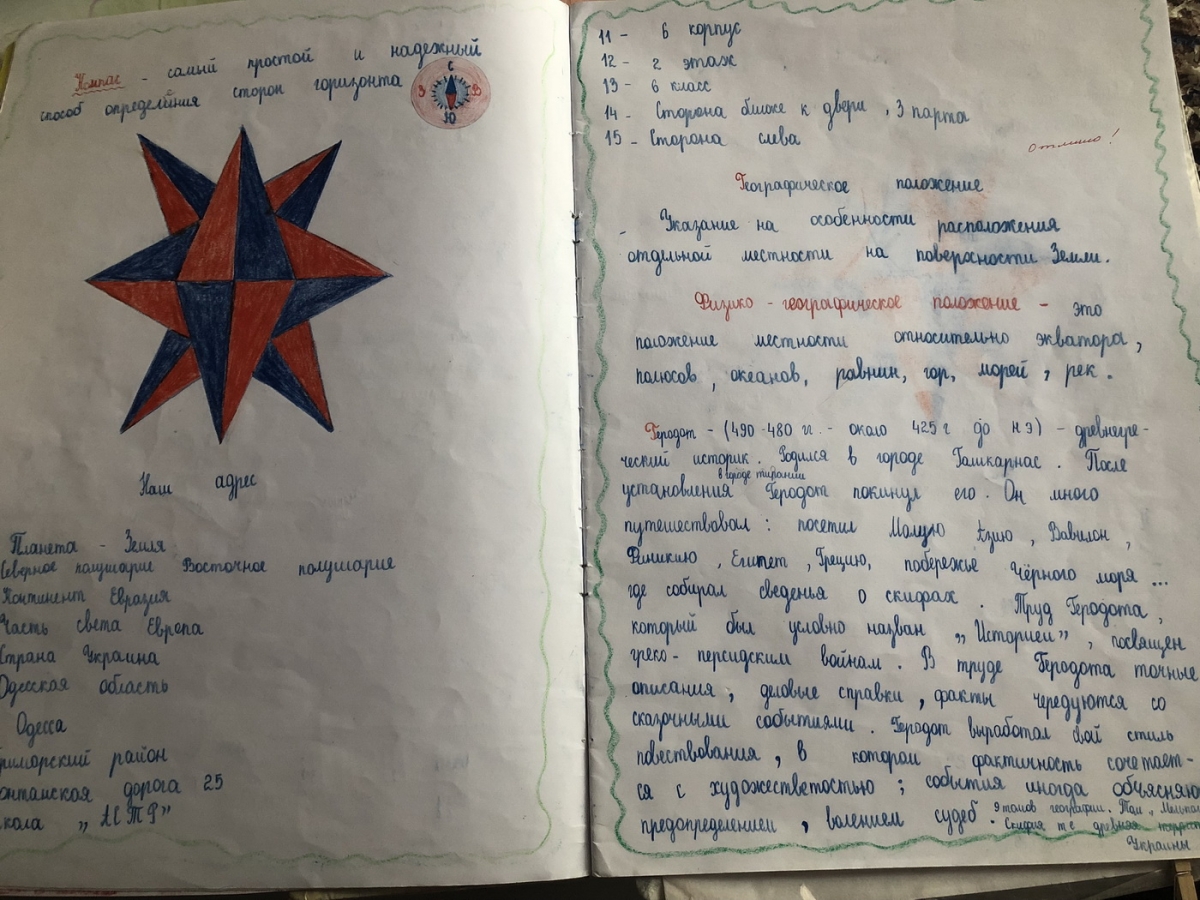 Компас - самый простой и надежный
способ определйния сторон горизонта
С
З В
Ю
Наш адрес
Планета - Земля
Северное полушарие Восточное полушарие
Континент Евразия
Часть света Европа
Страна Украина
Одесская область
Одесса
риморский район
онтанская дорога 25
кола „АСТР”
11 - 6 корпус
12 - 2 этаж
13 - 6 класс
14 - Сторона ближе к двери , 3 парта
15 - Сторона слева
Отлично!
Географическое положение
Указание на особенности расположения
отдельной местности на поверхности Земли.
Физико - географическое положение - это
положение местности относительно экватора,
полюсов , океанов, равнин, гор, морей , рек .
Геродот - (490-480 гг. - около 425 г до н э) - древнегре-
ческий историк . Родился в городе Галикарнас . После
в городе тирании
установления Геродот покинул его . Он много
путешествовал : посетил Малую Азию , Вавилон ,
Финикию , Египет , Грецию, побережье Чёрного моря ...
где собирал сведенья о скифах . Труд Геродота,
который был условно назван „Историей”, посвящен
греко - персидским войнам . В труде Геродота точные
описания , деловые справки , факты чередуются со
сказочными событиями . Геродот выработал свой стиль
повествования , в котором фактичность сочетает-
ся с художестветостью ; события иногда объясняю
предопределением , волением судеб . 9 томов географии. Том „Мельпом
Скифия т е древняя террит
Украины